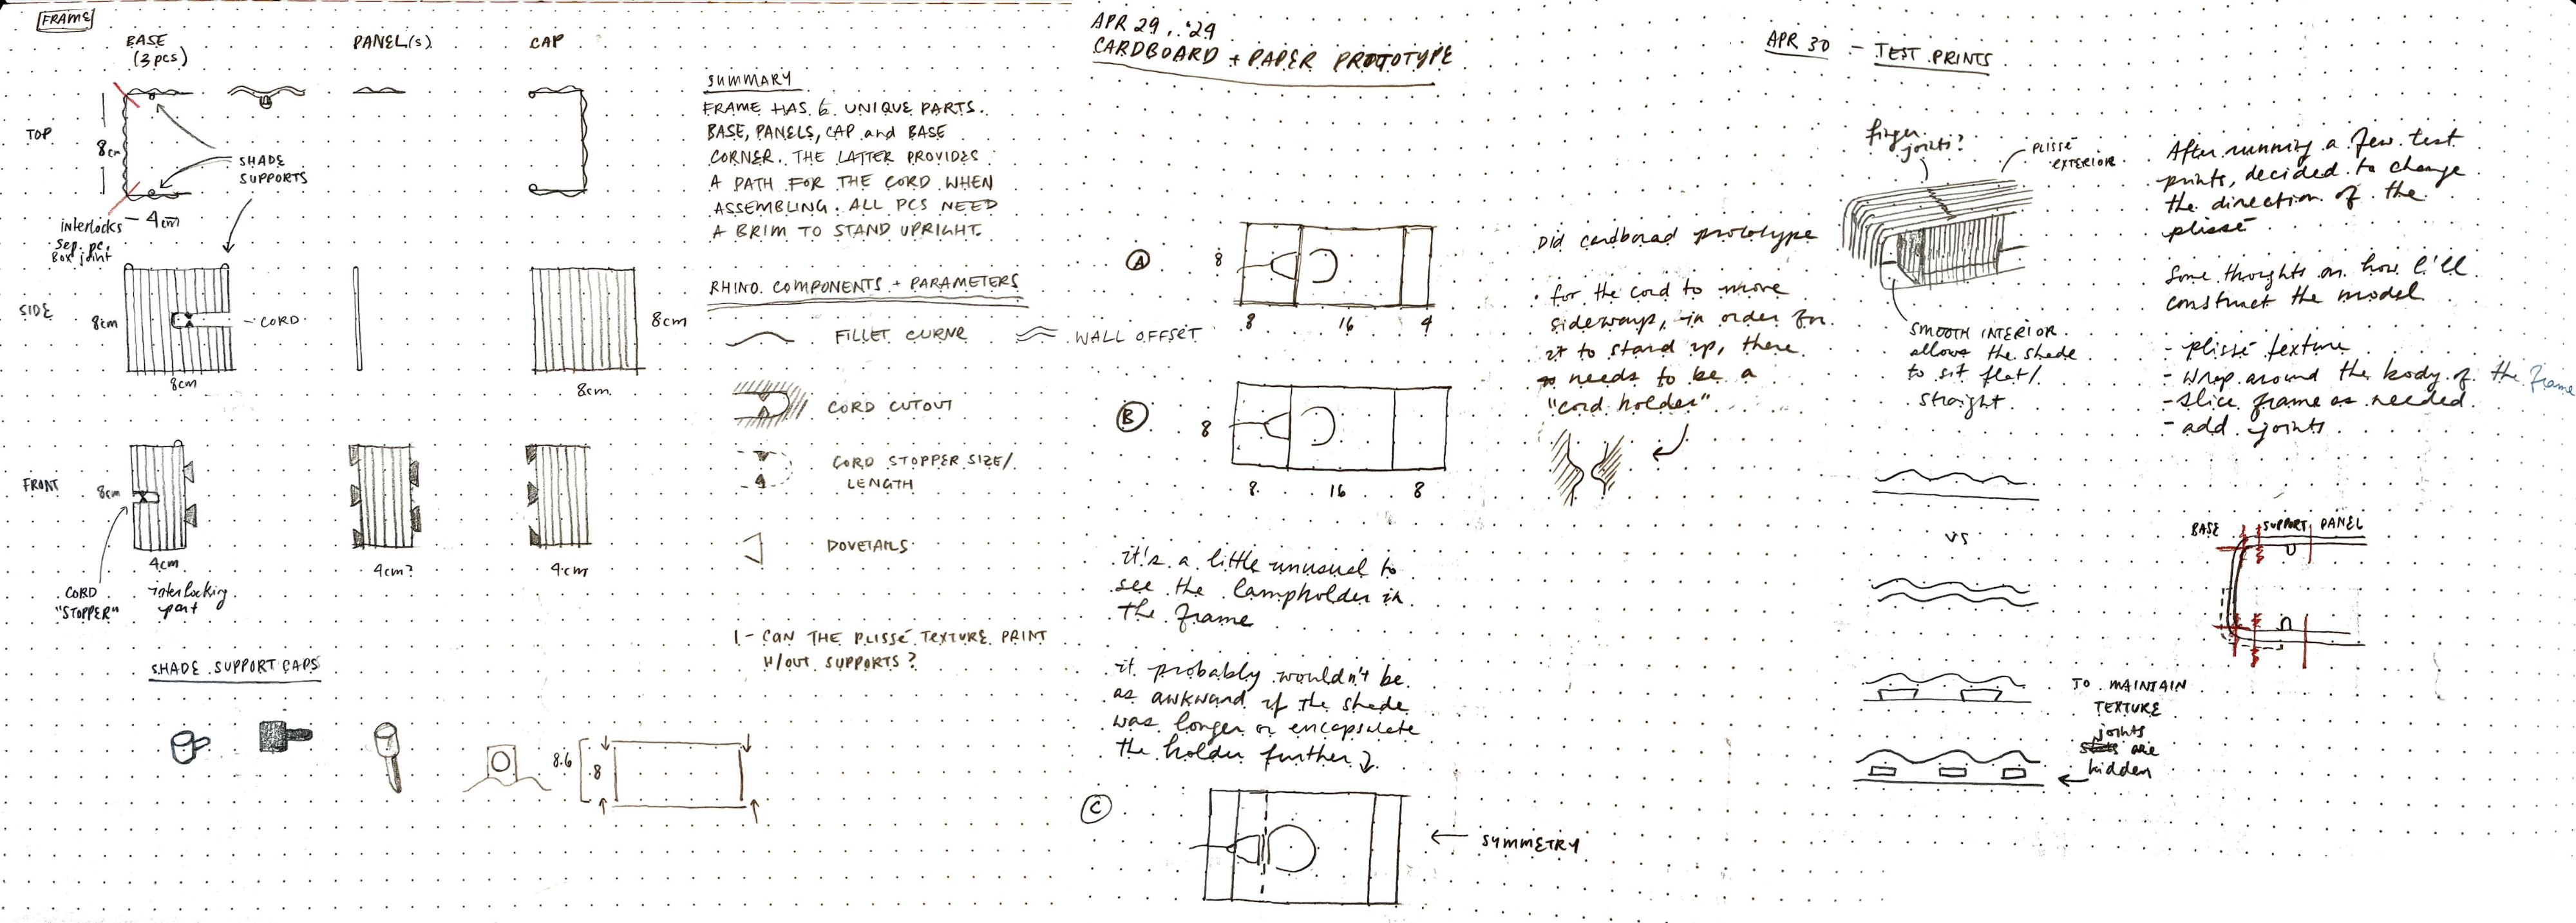 FRAME
BASE
(3 pcs)
PANEL(s)
CAP
TOP
8cm
4cm
SHADE
SUPPORTS
interlocks
sep. pc.
Box joint
SIDE
8cm
CORD
8cm
8cm
8cm
FRONT
8cm
4cm
4cm?
4cm
CORD
"STOPPER"
interlocking
part
SHADE SUPPORT CAPS
8.6
8
SUMMARY
FRAME HAS 6 UNIQUE PARTS.
BASE, PANELS, CAP and BASE
CORNER. THE LATTER PROVIDES
A PATH FOR THE CORD WHEN
ASSEMBLING. ALL PCS NEED
A BRIM TO STAND UPRIGHT.
RHINO COMPONENTS + PARAMETERS
FILLET CURVE
WALL OFFSET
CORD CUTOUT
CORD STOPPER SIZE/
LENGTH
DOVETAILS
1- CAN THE PLISSÉ TEXTURE PRINT
W/OUT SUPPORTS?
APR 29, '24
CARDBOARD + PAPER PROTOTYPE
A
8
8
16
4
B
8
8
16
8
it's a little unusual to
see the lampholder in
the frame
it probably wouldn't be
as awkward if the shade
was longer or encapsulate
the holder further
C
SYMMETRY
Did cardboard prototype
for the cord to move
sideways, in order for
it to stand up, there
needs to be a
"cord holder"
APR 30 - TEST PRINTS
finger
joints?
PLISSÉ
EXTERIOR
SMOOTH INTERIOR
allows the shade
to sit flat/
straight
VS
TO MAINTAIN
TEXTURE
joints
are
hidden
After running a few test
prints, decided to change
the direction of the
plissé
Some thoughts on how I'll
construct the model
- plissé texture
- Wrap around the body of the frame
- slice frame as needed
- add joints
BASE
SUPPORT
PANEL